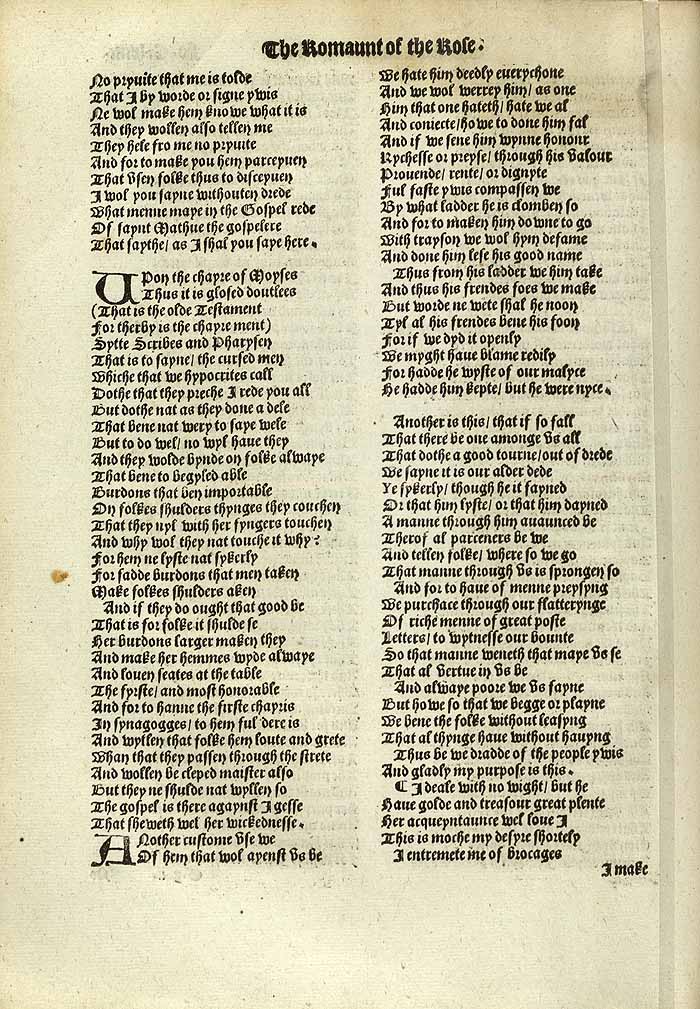 The Romaunt of the Rose.
No pryuite that me is tolde
That I by worde or signe ywis
Ne wol make hem knowe what it is
And they wollen also tellen me
They hele fro me no pryuite
And for to make you hem parceyuen
That vsen folke thus to disceyuen
I wol you sayne withouten drede
What menne maye in the Gospel rede
Of saynt Mathue the gospelere
That saythe/ as I shal you saye here.
UPon the chayre of Moyses
Thus it is glosed doutlees
(That is the olde Testament
For therby is the chayre ment)
Sytte Scribes and Pharysen
That is to sayne/ the cursed men
Whiche that we hypocrites call
Dothe that they preche I rede you all
But dothe nat as they done a dele
That bene nat wery to saye wele
But to do wel/ no wyl haue they
And they wolde bynde on folke alwaye
That bene to begyled able
Burdons that ben importable
On folkes shulders thynges they couchen
That they nyl with her fyngers touchen
And why wol they nat touche it why?
For hem ne lyste nat sykerly
For sadde burdons that men taken
Make folkes shulders aken
And if they do ought that good be
That is for folke it shulde se
Her burdons larger maken they
And make her hemmes wyde alwaye
And louen seates at the table
The fyrste/ and most honorable
And for to hanne the firste chayris
In synagogges/ to hem ful dere is
And wyllen that folke hem loute and grete
Whan that they passen through the strete
And wollen be cleped maister also
But they ne shulde nat wyllen so
The gospel is there agaynst I gesse
That sheweth wel her wickednesse.
ANother custome vse we
Of hem that wol ayenst vs be
We hate him deedly euerychone
And we wol werrey him/ as one
Him that one hateth/ hate we al
And coniecte/ howe to done him fal
And if we sene him wynne honour
Rychesse or preyse/ through his valour
Prouende/ rente/ or dignyte
Ful faste ywis compassen we
By what ladder he is clomben so
And for to maken him downe to go
With trayson we wol hym defame
And done him lese his good name
Thus from his ladder we him take
And thus his frendes foes we make
But worde ne wete shal he noon
Tyl al his frendes bene his foon
For if we dyd it openly
We myght haue blame redily
For hadde he wyste of our malyce
He hadde him kepte/ but he were nyce.
Another is this/ that if so fall
That there be one amonge vs all
That dothe a good tourne/ out of drede
We sayne it is our alder dede
Ye sykerly/ though he it fayned
Or that him lyste/ or that him dayned
A manne through him auaunced be
Therof al parceners be we
And tellen folke/ where so we go
That manne through vs is sprongen so
And for to haue of menne preysyng
We purchace through our flatterynge
Of riche menne of great poste
Letters/ to wytnesse our bounte
So that manne weneth that maye vs se
That al vertue in vs be
And alwaye poore we vs fayne
But howe so that we begge or playne
We bene the folke without leasyng
That al thynge haue without hauyng
Thus be we dradde of the people ywis
And gladly my purpose is this.
¶ I deale with no wight/ but he
Haue golde and treasour great plente
Her acqueyntaunce wel loue I
This is moche my desyre shortely
I entremete me of brocages
I make